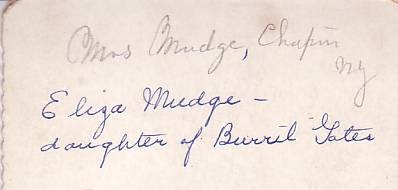 Mrs Mudge, Chapin
NY
Eliza Mudge –
daughter of Burril Gates